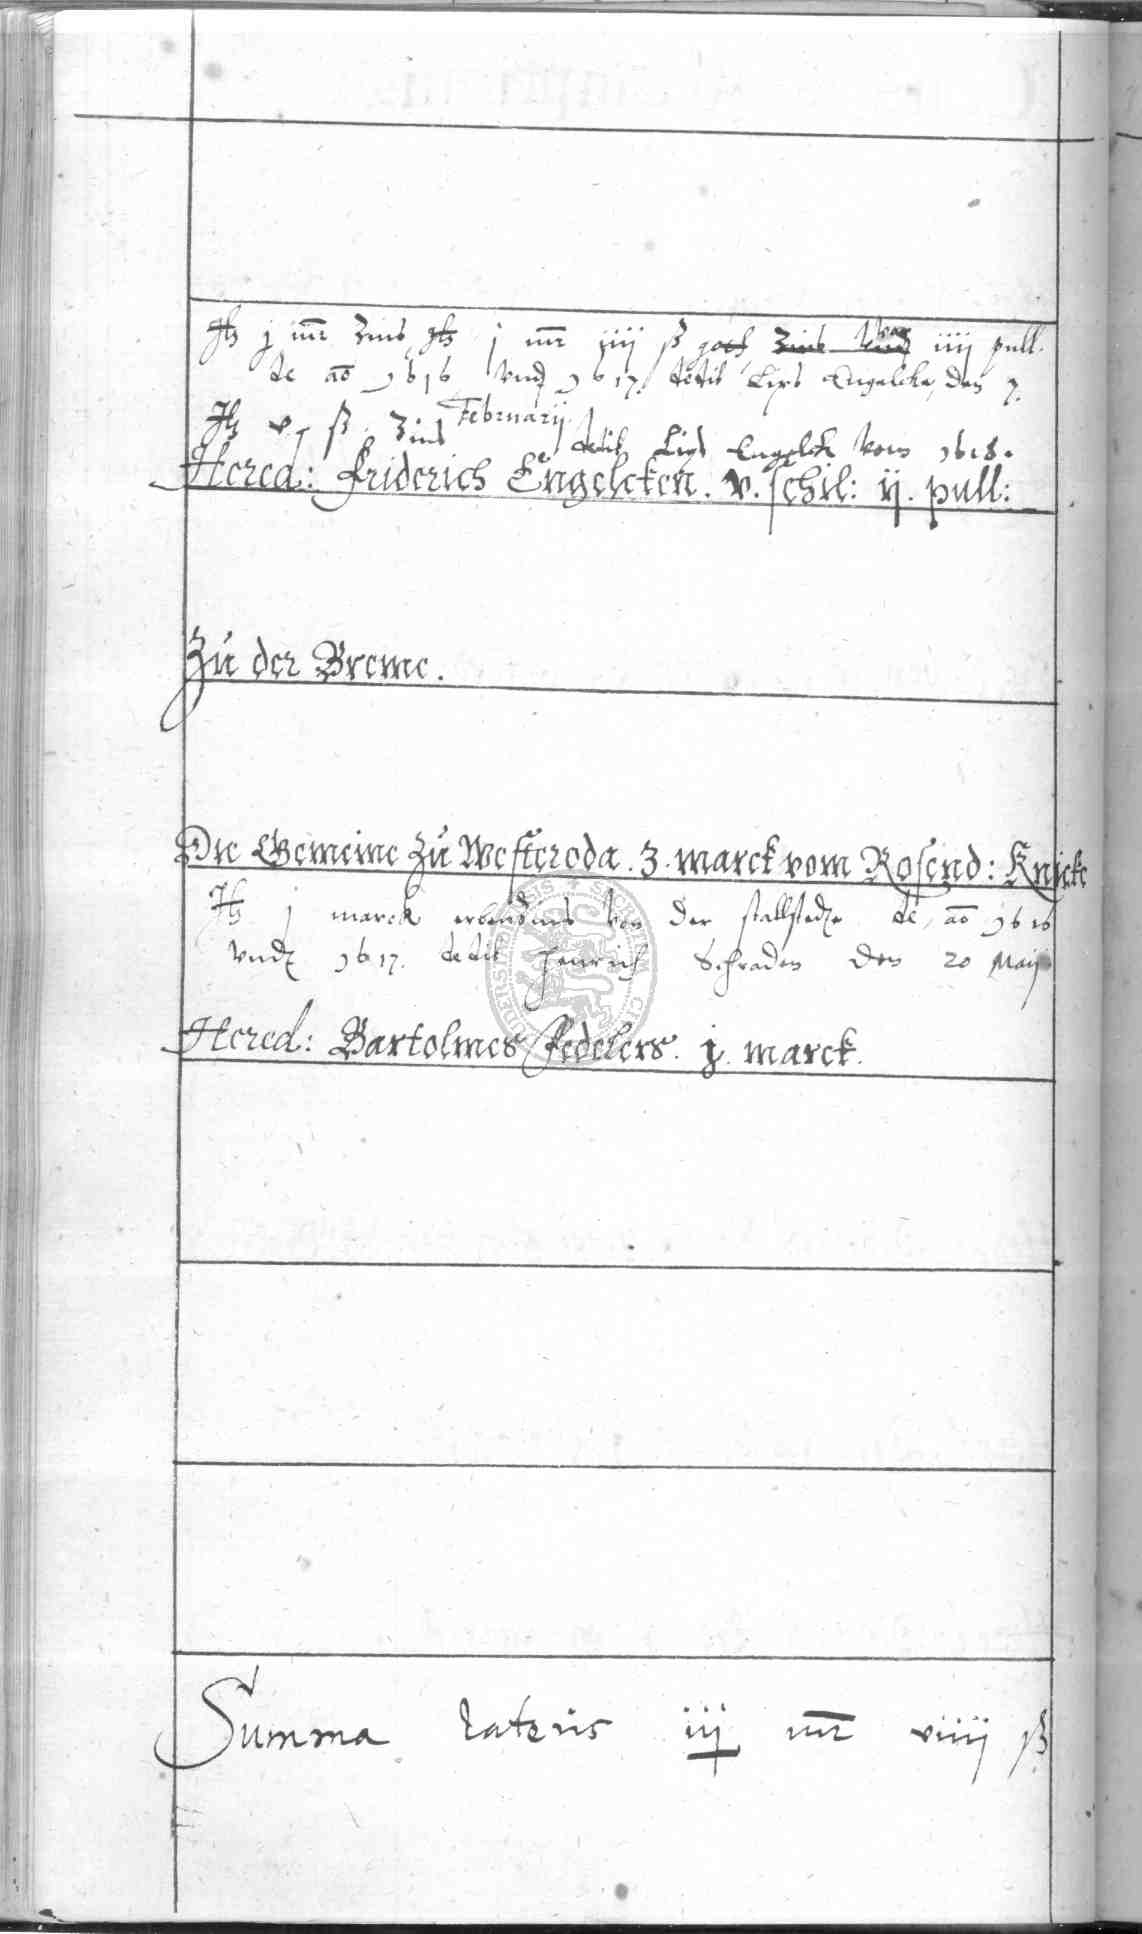 It j mr Zins It j mr iiij ß iiij pull.
de ao 1616 vnd 1617. dedit Engelcke, den 7.
Februarij
It v ß. Zins dedit Engelck vom 1618.
Hered: Friderich Engelcken. v. schil: ij. pull:
Zu der Breme.
Die Gemeine zu Westeroda. 3. marck vom Rosend: Knicke
It j marck erbenzins von der stallstedte de ao 1616
vnd 1617. dedit Henrich Schraden den 20 Maij
Hered: Bartolmes Fedelers. j. marck.
Summa lateris iij mr viiij ß